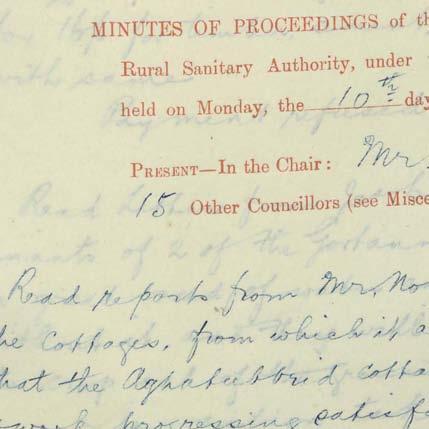 MINUTES OF PROCEEDINGS of th
Rural Sanitary Authority, under
held on Monday, the 10th day
PRESENT—In the Chair: Mr.
15 Other Councillors (see Misce
Read reports from Mr. No
he Cottages, from which it a
hat the Aghatubbrid cotta
work progressing satisfa